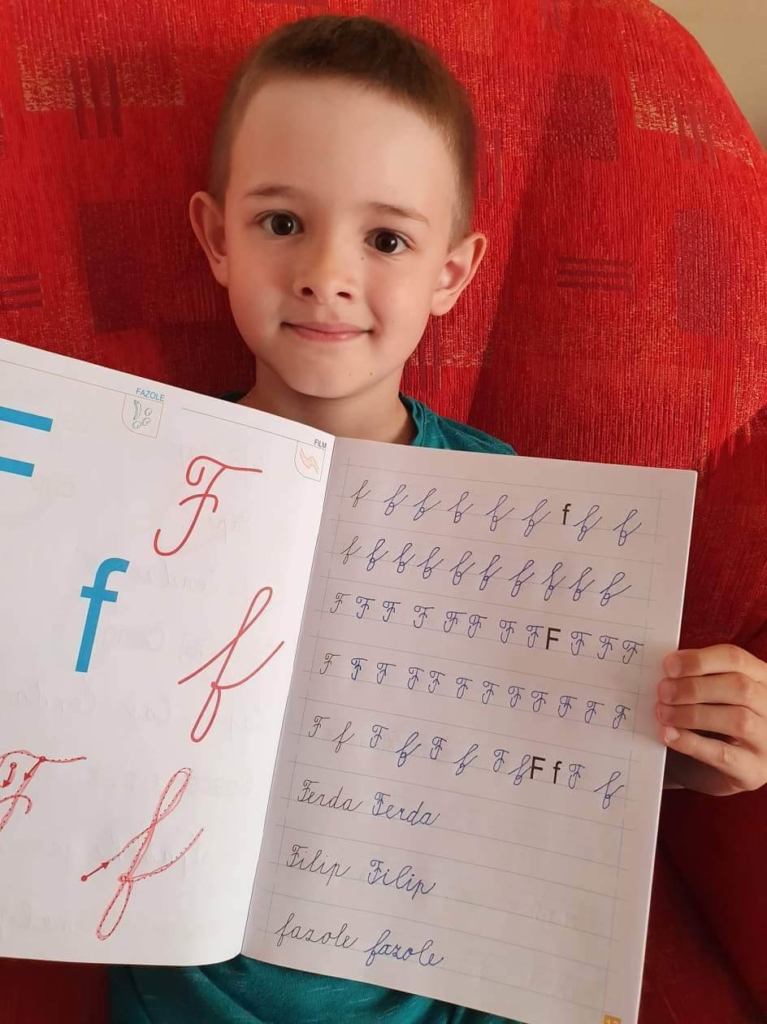 FAZOLE
FILM
F
F
f
f
F f
f f f f f f f f f
f f f f f f f f f f
F F F F F F F F F F F F
F F F F F F F F F F F F
F f F f F f F f F f F f
Ferda Ferda
Filip Filip
fazole fazole